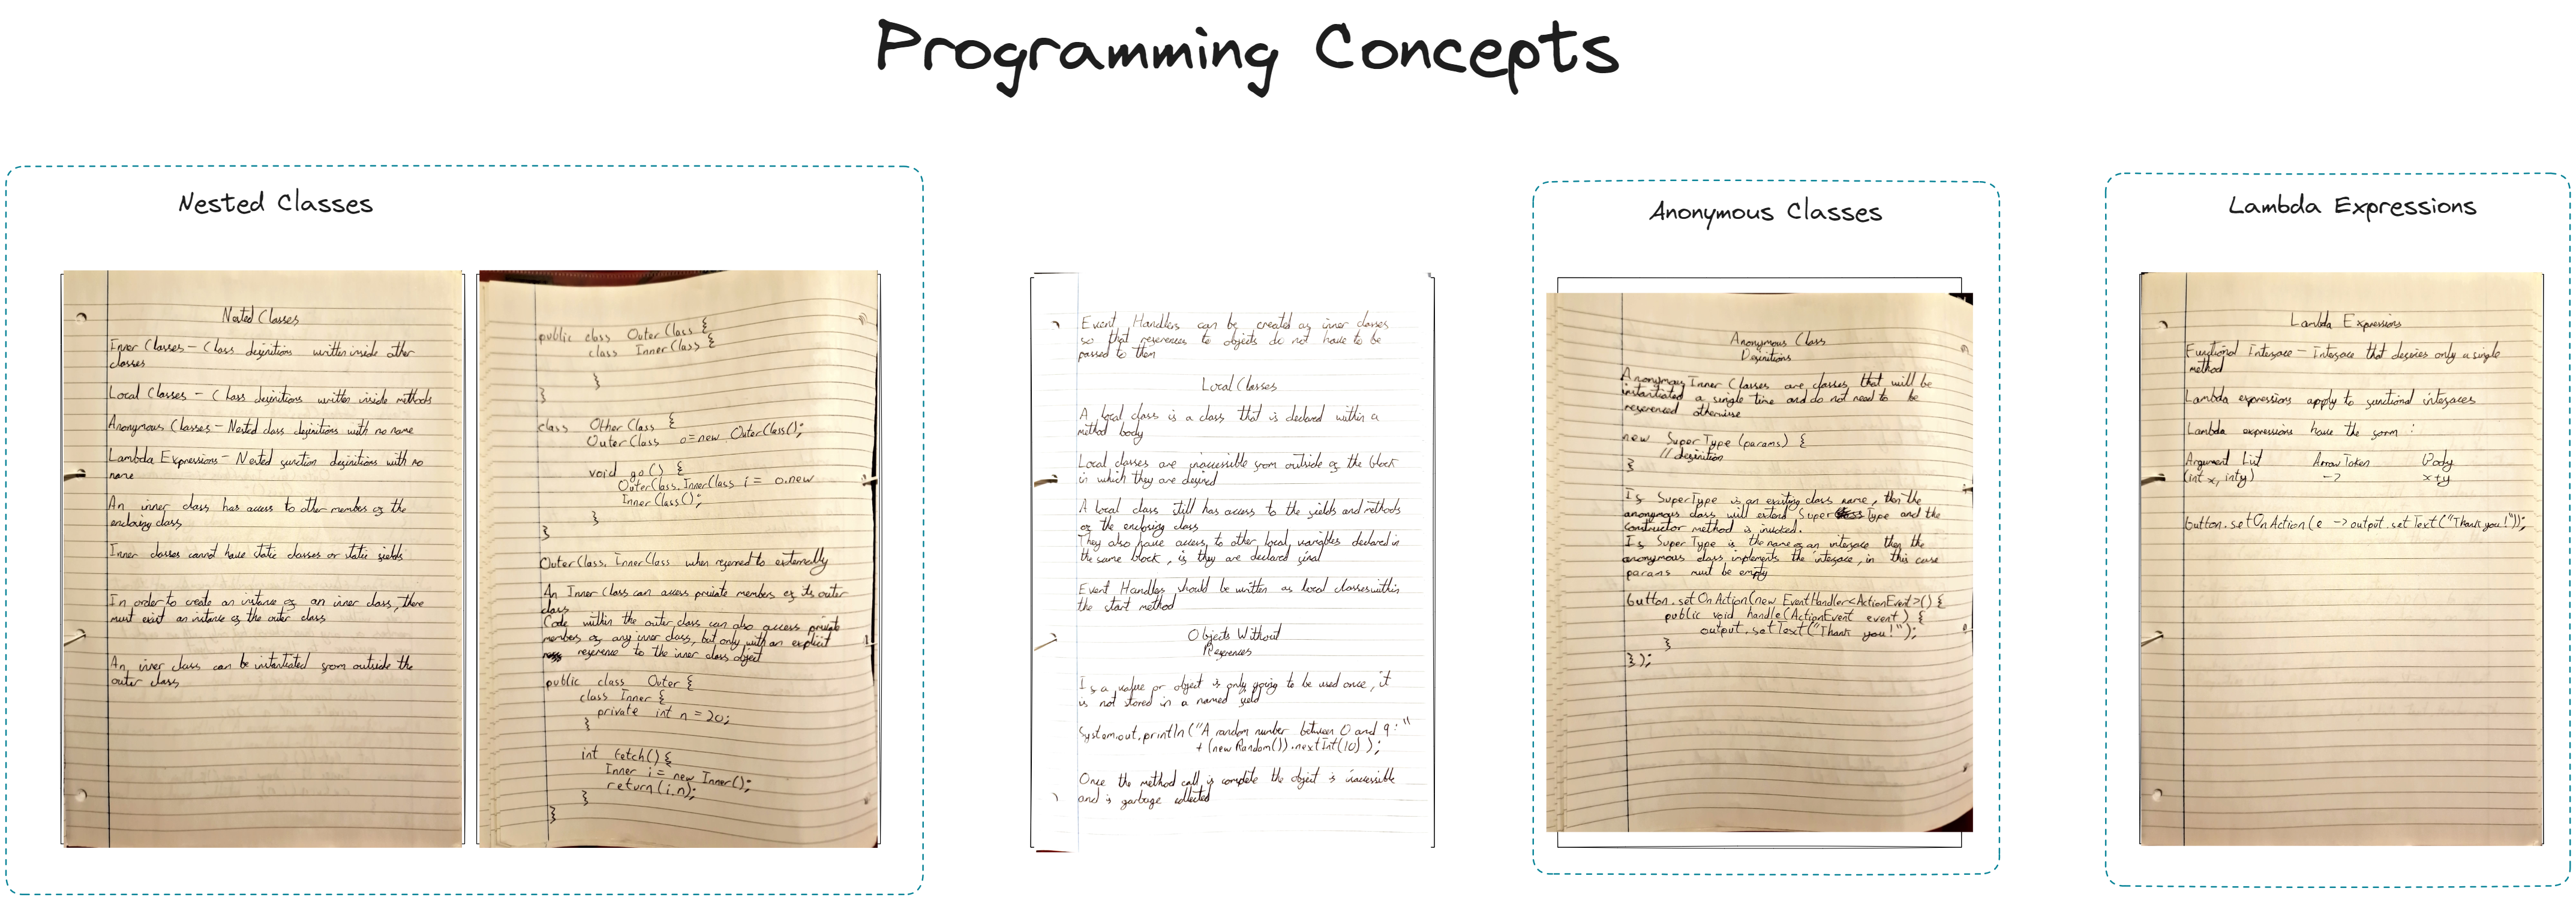 Programming Concepts
Nested Classes
Nested Classes
Inner Classes - Class definitions written inside other
classes
Local Classes - Class definitions written inside methods
Anonymous Classes - Nested class definitions with no name
Lambda Expressions - Nested function definitions with no
name
An inner class has access to other members of the
enclosing class
Inner classes cannot have static classes or static fields
In order to create an instance of an inner class, there
must exist an instance of the outer class
An inner class can be instantiated from outside the
outer class
public class OuterClass {
class InnerClass {
}
}
class OtherClass {
OuterClass o = new OuterClass();
void go() {
OuterClass.InnerClass i = o.new
InnerClass();
}
}
OuterClass.InnerClass when referred to externally
An Inner Class can access private members of its outer
class
Code within the outer class can also access private
members of any inner class, but only with an explicit
reference to the inner class object
public class Outer {
class Inner {
private int n = 20;
}
int fetch() {
Inner i = new Inner();
return(i.n);
}
}
Event Handlers can be created as inner classes
so that references to objects do not have to be
passed to them
Local Classes
A local class is a class that is declared within a
method body
Local classes are inaccessible from outside of the block
in which they are defined
A local class still has access to the fields and methods
of the enclosing class
They also have access to other local variables declared in
the same block, if they are declared final
Event Handlers should be written as local classes within
the start method
Objects Without
References
If a value or object is only going to be used once, it
is not stored in a named field
System.out.println("A random number between 0 and 9:"
+ (new Random()).nextInt(10));
Once the method call is complete the object is inaccessible
and is garbage collected
Anonymous Classes
Anonymous Class
Definitions
Anonymous Inner Classes are classes that will be
instantiated a single time and do not need to be
referenced otherwise
new SuperType (params) {
// definition
}
If SuperType is an existing class name, then the
anonymous class will extend SuperType and the
constructor method is invoked.
If SuperType is the name of an interface then the
anonymous class implements the interface, in this case
params must be empty
button.setOnAction(new EventHandler<ActionEvent>() {
public void handle(ActionEvent event) {
output.setText("Thank you!");
}
});
Lambda Expressions
Lambda Expressions
Functional Interface - Interface that defines only a single
method
Lambda expressions apply to functional interfaces
Lambda expressions have the form :
Argument List Arrow Token Body
(int x, int y) -> x+y
button.setOnAction(e -> output.setText("Thank you!"));